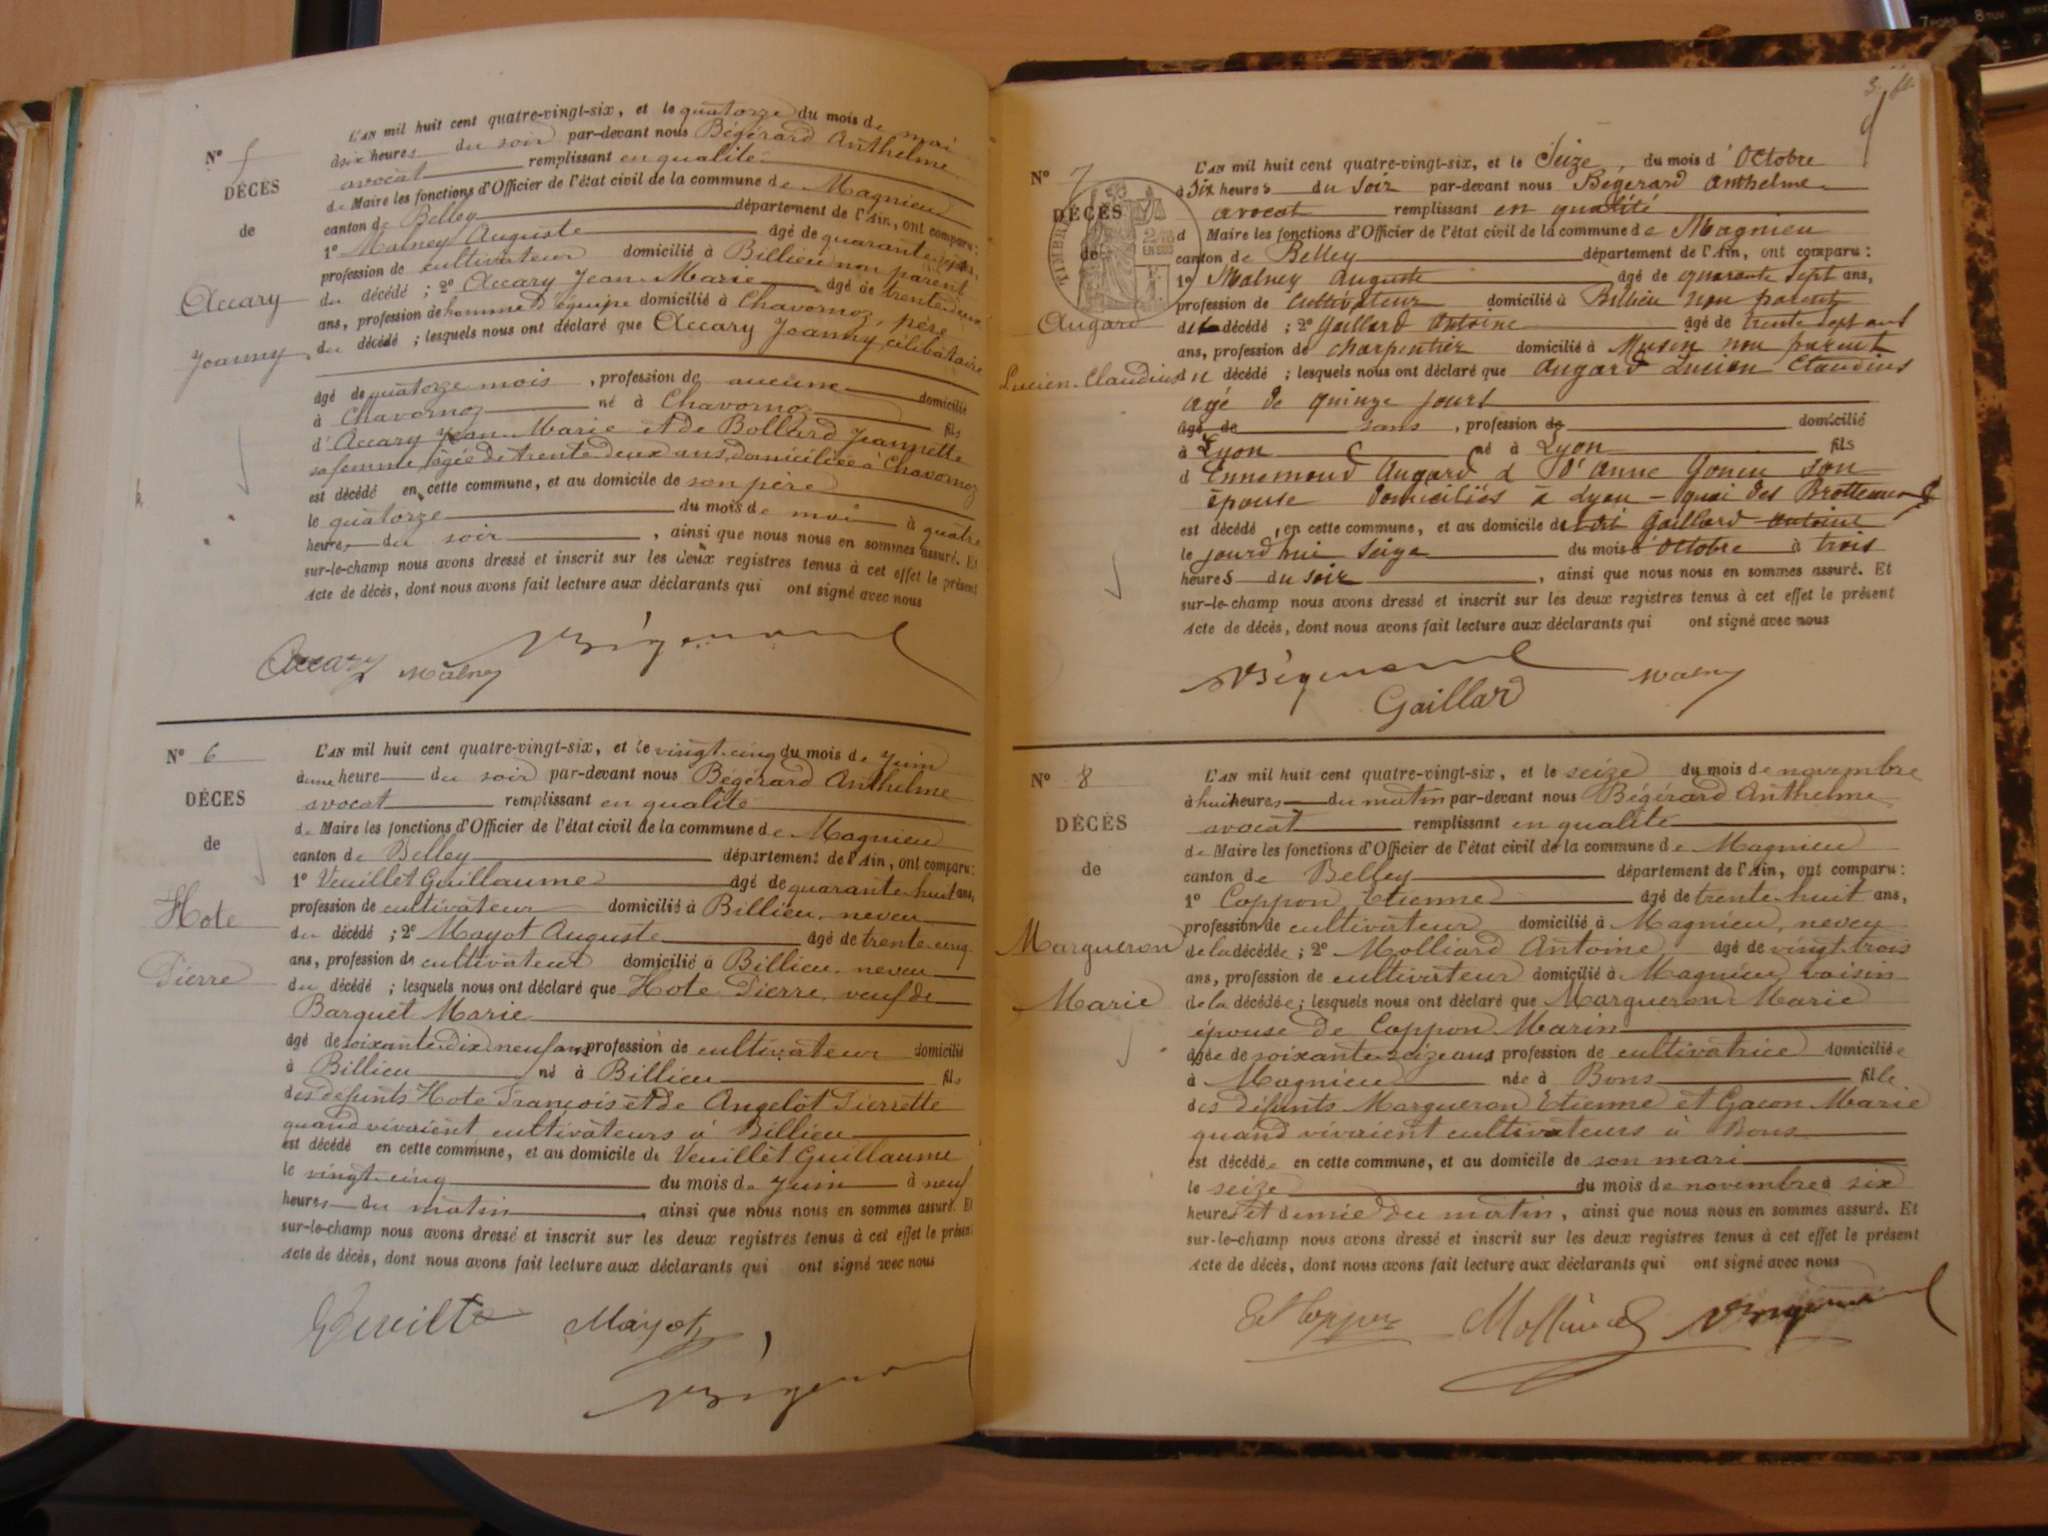 N° 5
DÉCÈS
de
Accary
Joanny
L'AN mil huit cent quatre-vingt-six, et le quatorze du mois de mai
à six heures du soir par-devant nous Bégérard Anthelme
avocat remplissant en qualité
de Maire les fonctions d'Officier de l'état civil de la commune de Magnieu
canton de Belley département de l'Ain, ont comparu:
1° Malney Auguste âgé de quarante
profession de cultivateur domicilié à Billieu non parent
du décédé ; 2° Accary Jean Marie âgé de trente deux
ans, profession de homme d'équipe domicilié à Chavornoz, père
du décédé ; lesquels nous ont déclaré que Accary Joanny, célibataire
âgé de quatorze mois, profession de aucune domicilié
à Chavornoz né à Chavornoz fils
d'Accary Jean Marie et de Bollard Jeannette
sa femme âgée de trente deux ans, domiciliée à Chavornoz
est décédé en cette commune, et au domicile de son père
le quatorze du mois de mai à quatre
heures du soir, ainsi que nous nous en sommes assuré. Et
sur-le-champ nous avons dressé et inscrit sur les deux registres tenus à cet effet le présent
acte de décès, dont nous avons fait lecture aux déclarants qui ont signé avec nous
Accary Malney Bégerard
N° 6
DÉCES
de
Hote
Pierre
L'AN mil huit cent quatre-vingt-six, et le vingt-cinq du mois de Juin
à une heure du soir par-devant nous Bégérard Anthelme
avocat remplissant en qualité
de Maire les fonctions d'Officier de l'état civil de la commune de Magnieu
canton de Belley département de l'Ain, ont comparu:
1° Veuillet Guillaume âgé de quarante-huit ans,
profession de cultivateur domicilié à Billieu, neveu
du décédé ; 2° Mayot Auguste âgé de trente cinq
ans, profession de cultivateur domicilié à Billieu, neveu
du décédé ; lesquels nous ont déclaré que Hote Pierre, veuf de
Barquet Marie
âgé de soixante-dix neuf ans, profession de cultivateur domicilié
à Billieu né à Billieu fils
des défunts Hote François et de Angelot Pierrette
quand vivaient cultivateurs à Billieu
est décédé en cette commune, et au domicile de Veuillet Guillaume
le vingt-cinq du mois de Juin à neuf
heures du matin, ainsi que nous nous en sommes assuré. Et
sur-le-champ nous avons dressé et inscrit sur les deux registres tenus à cet effet le présent
acte de décès, dont nous avons fait lecture aux déclarants qui ont signé avec nous
Mayot
N° 7
DÉCÈS
de
Augard
Lucien Claudius
L'AN mil huit cent quatre-vingt-six, et le Seize, du mois d'Octobre
à six heures du soir par-devant nous Bégérard Anthelme
avocat remplissant en qualité
d Maire les fonctions d'Officier de l'état civil de la commune de Magnieu
canton de Belley département de l'Ain, ont comparu:
1° Malney Auguste âgé de quarante sept ans,
profession de cultivateur domicilié à Billieu non parent
du décédé ; 2° Gaillard Antoine âgé de trente sept ans
ans, profession de charpentier domicilié à Musin non parent
du décédé ; lesquels nous ont déclaré que Augard Lucien Claudius
âgé de quinze jours
âgé de sans, profession de domicilié
à Lyon né à Lyon fils
d Ennemond Augard & d'Anne Gonin son
épouse domiciliés à Lyon - quai des Brotteaux
est décédé, en cette commune, et au domicile de Gaillard Antoine
le jourd'hui seize du mois d'Octobre à trois
heures du soir, ainsi que nous nous en sommes assuré. Et
sur-le-champ nous avons dressé et inscrit sur les deux registres tenus à cet effet le présent
acte de décès, dont nous avons fait lecture aux déclarants qui ont signé avec nous
Bégerard Malney
Gaillard
N° 8
DÉCÈS
de
Margueron
Marie
L'AN mil huit cent quatre-vingt-six, et le seize du mois de novembre
à huit heures du matin par-devant nous Bégérard Anthelme
avocat remplissant en qualité
de Maire les fonctions d'Officier de l'état civil de la commune de Magnieu
canton de Belley département de l'Ain, ont comparu:
1° Coppon Etienne âgé de trente-huit ans,
profession de cultivateur domicilié à Magnieu, neveu
de la décédée ; 2° Molliard Antoine âgé de vingt-trois
ans, profession de cultivateur domicilié à Magnieu, voisin
de la décédée ; lesquels nous ont déclaré que Margueron Marie
épouse de Coppon Marin
âgée de soixante-seize ans, profession de cultivatrice domiciliée
à Magnieu née à Bons fille
des défunts Margueron Etienne et Gacon Marie
quand vivaient cultivateurs à Bons
est décédée en cette commune, et au domicile de son mari
le seize du mois de novembre à six
heures et demie du matin, ainsi que nous nous en sommes assuré. Et
sur-le-champ nous avons dressé et inscrit sur les deux registres tenus à cet effet le présent
acte de décès, dont nous avons fait lecture aux déclarants qui ont signé avec nous